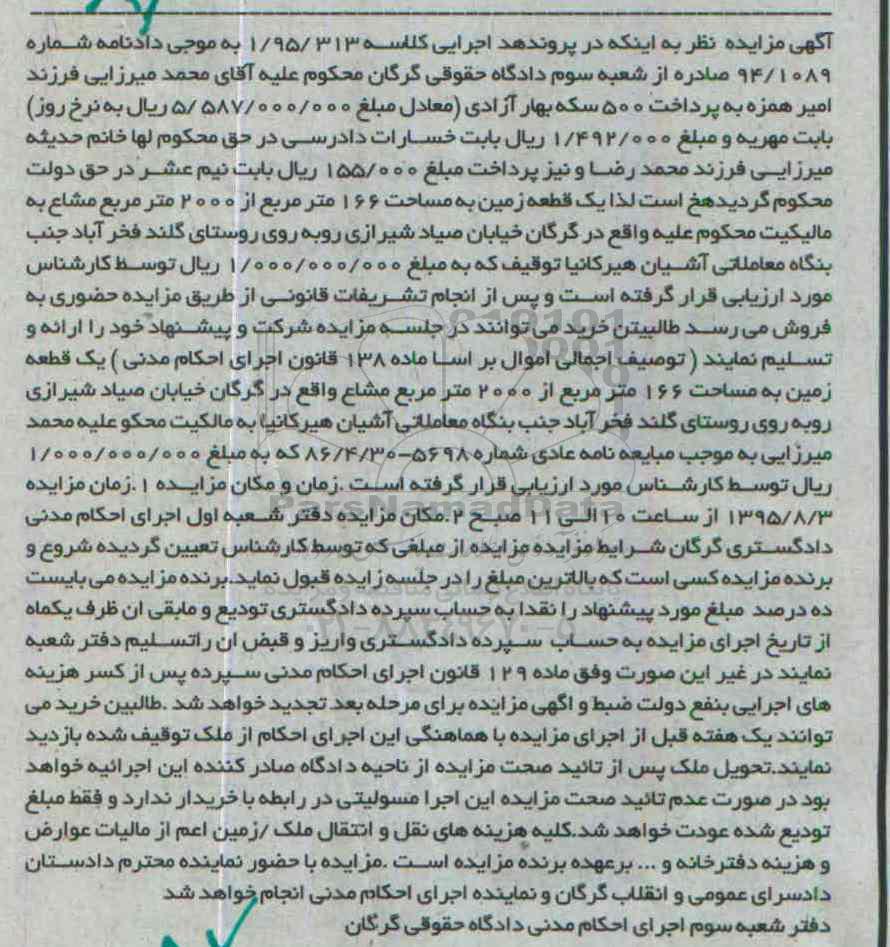 آگهی مزایده نظر به اینکه در پروندهد اجرایی کلاسه ۱/۹۵/۳۱۳ به موجی دادنامه شماره
۹۴/۱۰۸۹ صادره از شعبه سوم دادگاه حقوقی گرگان محکوم علیه آقای محمد میرزایی فرزند
امیر همزه به پرداخت ۵۰۰ سکه بهار آزادی (معادل مبلغ ۵/۵۸۷/۰۰۰/۰۰۰ ریال به نرخ روز)
بابت مهریه و مبلغ ۱/۴۹۲/۰۰۰ ریال بابت خسارات دادرسی در حق محکوم لها خانم حدیثه
میرزایی فرزند محمد رضا و نیز پرداخت مبلغ ۱۵۵/۰۰۰ ریال بابت نیم عشر در حق دولت
محکوم گردیدهخ است لذا یک قطعه زمین به مساحت ۱۶۶ متر مربع از ۲۰۰۰ متر مربع مشاع به
مالیکیت محکوم علیه واقع در گرگان خیابان صیاد شیرازی روبه روی روستای گلند فخر آباد جنب
بنگاه معاملاتی آشیان هیرکانیا توقیف که به مبلغ ۱/۰۰۰/۰۰۰/۰۰۰ ریال توسط کارشناس
مورد ارزیابی قرار گرفته است و پس از انجام تشریفات قانونی از طریق مزایده حضوری به
فروش می رسد طالبیتن خرید می توانند در جلسه مزایده شرکت و پیشنهاد خود را ارائه و
تسلیم نمایند ( توصیف اجمالی اموال بر اسا ماده ۱۳۸ قانون اجرای احکام مدنی ) یک قطعه
زمین به مساحت ۱۶۶ متر مربع از ۲۰۰۰ متر مربع مشاع واقع در گرگان خیابان صیاد شیرازی
روبه روی روستای گلند فخر آباد جنب بنگاه معاملاتی آشیان هیرکانیا به مالکیت محکو علیه محمد
میرزایی به موجب مبایعه نامه عادی شماره ۵۶۹۸-۸۶/۴/۳۰ که به مبلغ ۱/۰۰۰/۰۰۰/۰۰۰
ریال توسط کارشناس مورد ارزیابی قرار گرفته است .زمان و مکان مزایده ۱.زمان مزایده
۱۳۹۵/۸/۳ از ساعت ۱۰ الی ۱۱ صبح ۲.مکان مزایده دفتر شعبه اول اجرای احکام مدنی
دادگستری گرگان شرایط مزایده مزایده از مبلغی که توسط کارشناس تعیین گردیده شروع و
برنده مزایده کسی است که بالاترین مبلغ را در جلسه زایده قبول نماید.برنده مزایده می بایست
ده درصد مبلغ مورد پیشنهاد را نقدا به حساب سپرده دادگستری تودیع و مابقی ان ظرف یکماه
از تاریخ اجرای مزایده به حساب سپرده دادگستری واریز و قبض ان راتسلیم دفتر شعبه
نمایند در غیر این صورت وفق ماده ۱۲۹ قانون اجرای احکام مدنی سپرده پس از کسر هزینه
های اجرایی بنفع دولت ضبط و اگهی مزایده برای مرحله بعد تجدید خواهد شد .طالبین خرید می
توانند یک هفته قبل از اجرای مزایده با هماهنگی این اجرای احکام از ملک توقیف شده بازدید
نمایند.تحویل ملک پس از تائید صحت مزایده از ناحیه دادگاه صادر کننده این اجرائیه خواهد
بود در صورت عدم تائید صحت مزایده این اجرا مسولیتی در رابطه با خریدار ندارد و فقط مبلغ
تودیع شده عودت خواهد شد.کلیه هزینه های نقل و انتقال ملک /زمین اعم از مالیات عوارض
و هزینه دفترخانه و ... برعهده برنده مزایده است .مزایده با حضور نماینده محترم دادستان
دادسرای عمومی و انقلاب گرگان و نماینده اجرای احکام مدنی انجام خواهد شد
دفتر شعبه سوم اجرای احکام مدنی دادگاه حقوقی گرگان
ParsNamadData